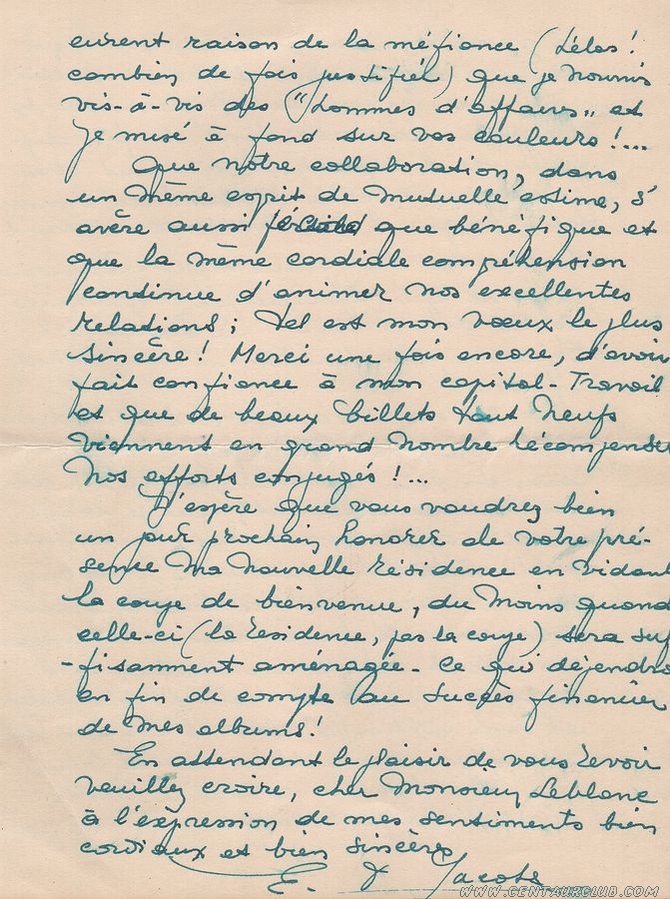 eurent raison de la méfiance (hélas!
combien de fois justifié!) que je nourris
vis-à-vis des "hommes d'affaires" et
je misé à fond sur vos couleurs!...
Que notre collaboration, dans
un même esprit de mutuelle estime, s'
avère aussi que bénéfique et
que la même cordiale compréhension
continue d'animer nos excellentes
relations; tel est mon vœux le plus
sincère! Merci une fois encore, d'avoir
fait confiance à mon capital-Travail
et que de beaux billets tout neufs
viennent en grand nombre récompenser
nos efforts conjugés!...
J'espère que vous voudrez bien
un jour prochain honorer de votre pré-
sence ma nouvelle résidence en vidant
la coupe de bienvenue, du moins quand
celle-ci (la résidence, pas la coupe) sera suf
-fisamment aménagée - ce qui dépendra
en fin de compte au succès financier
de mes albums!
En attendant le plaisir de vous revoir
veuillez croire, cher Monsieur Leblanc
à l'expression de mes sentiments bien
cordiaux et bien sincères
E. P. Jacobs
WWW.CENTAURCLUB.COM